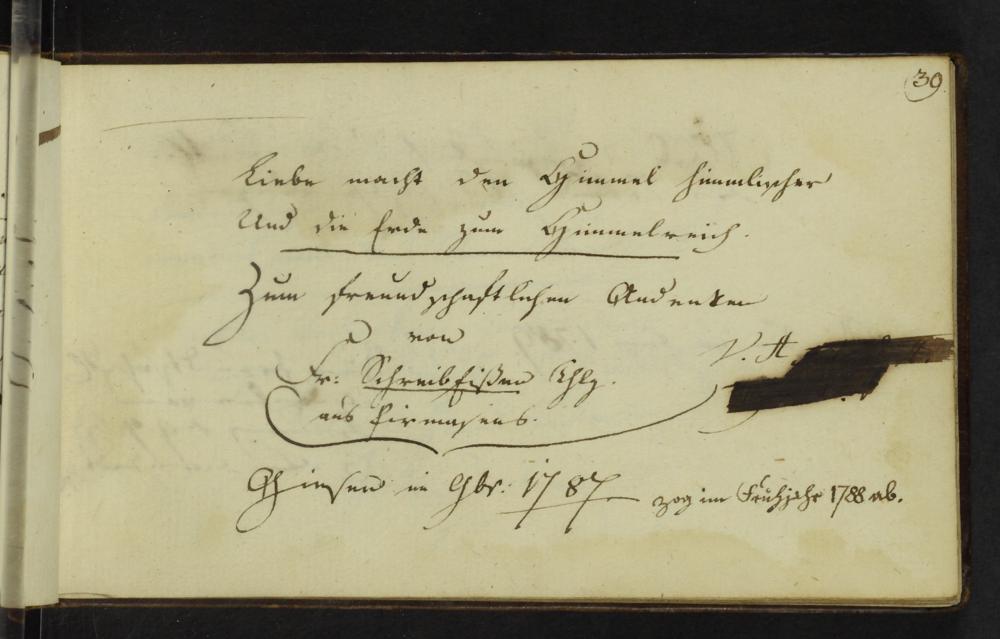 39
Liebe macht den Himmel himmlischer
Und die Erde zum Himmelreich.
Zum freundschaftlichen Andenken
von
V. A
Fr:
aus Pirmasens.
Giesen im 1787
zog im Frühjahr 1788 ab.